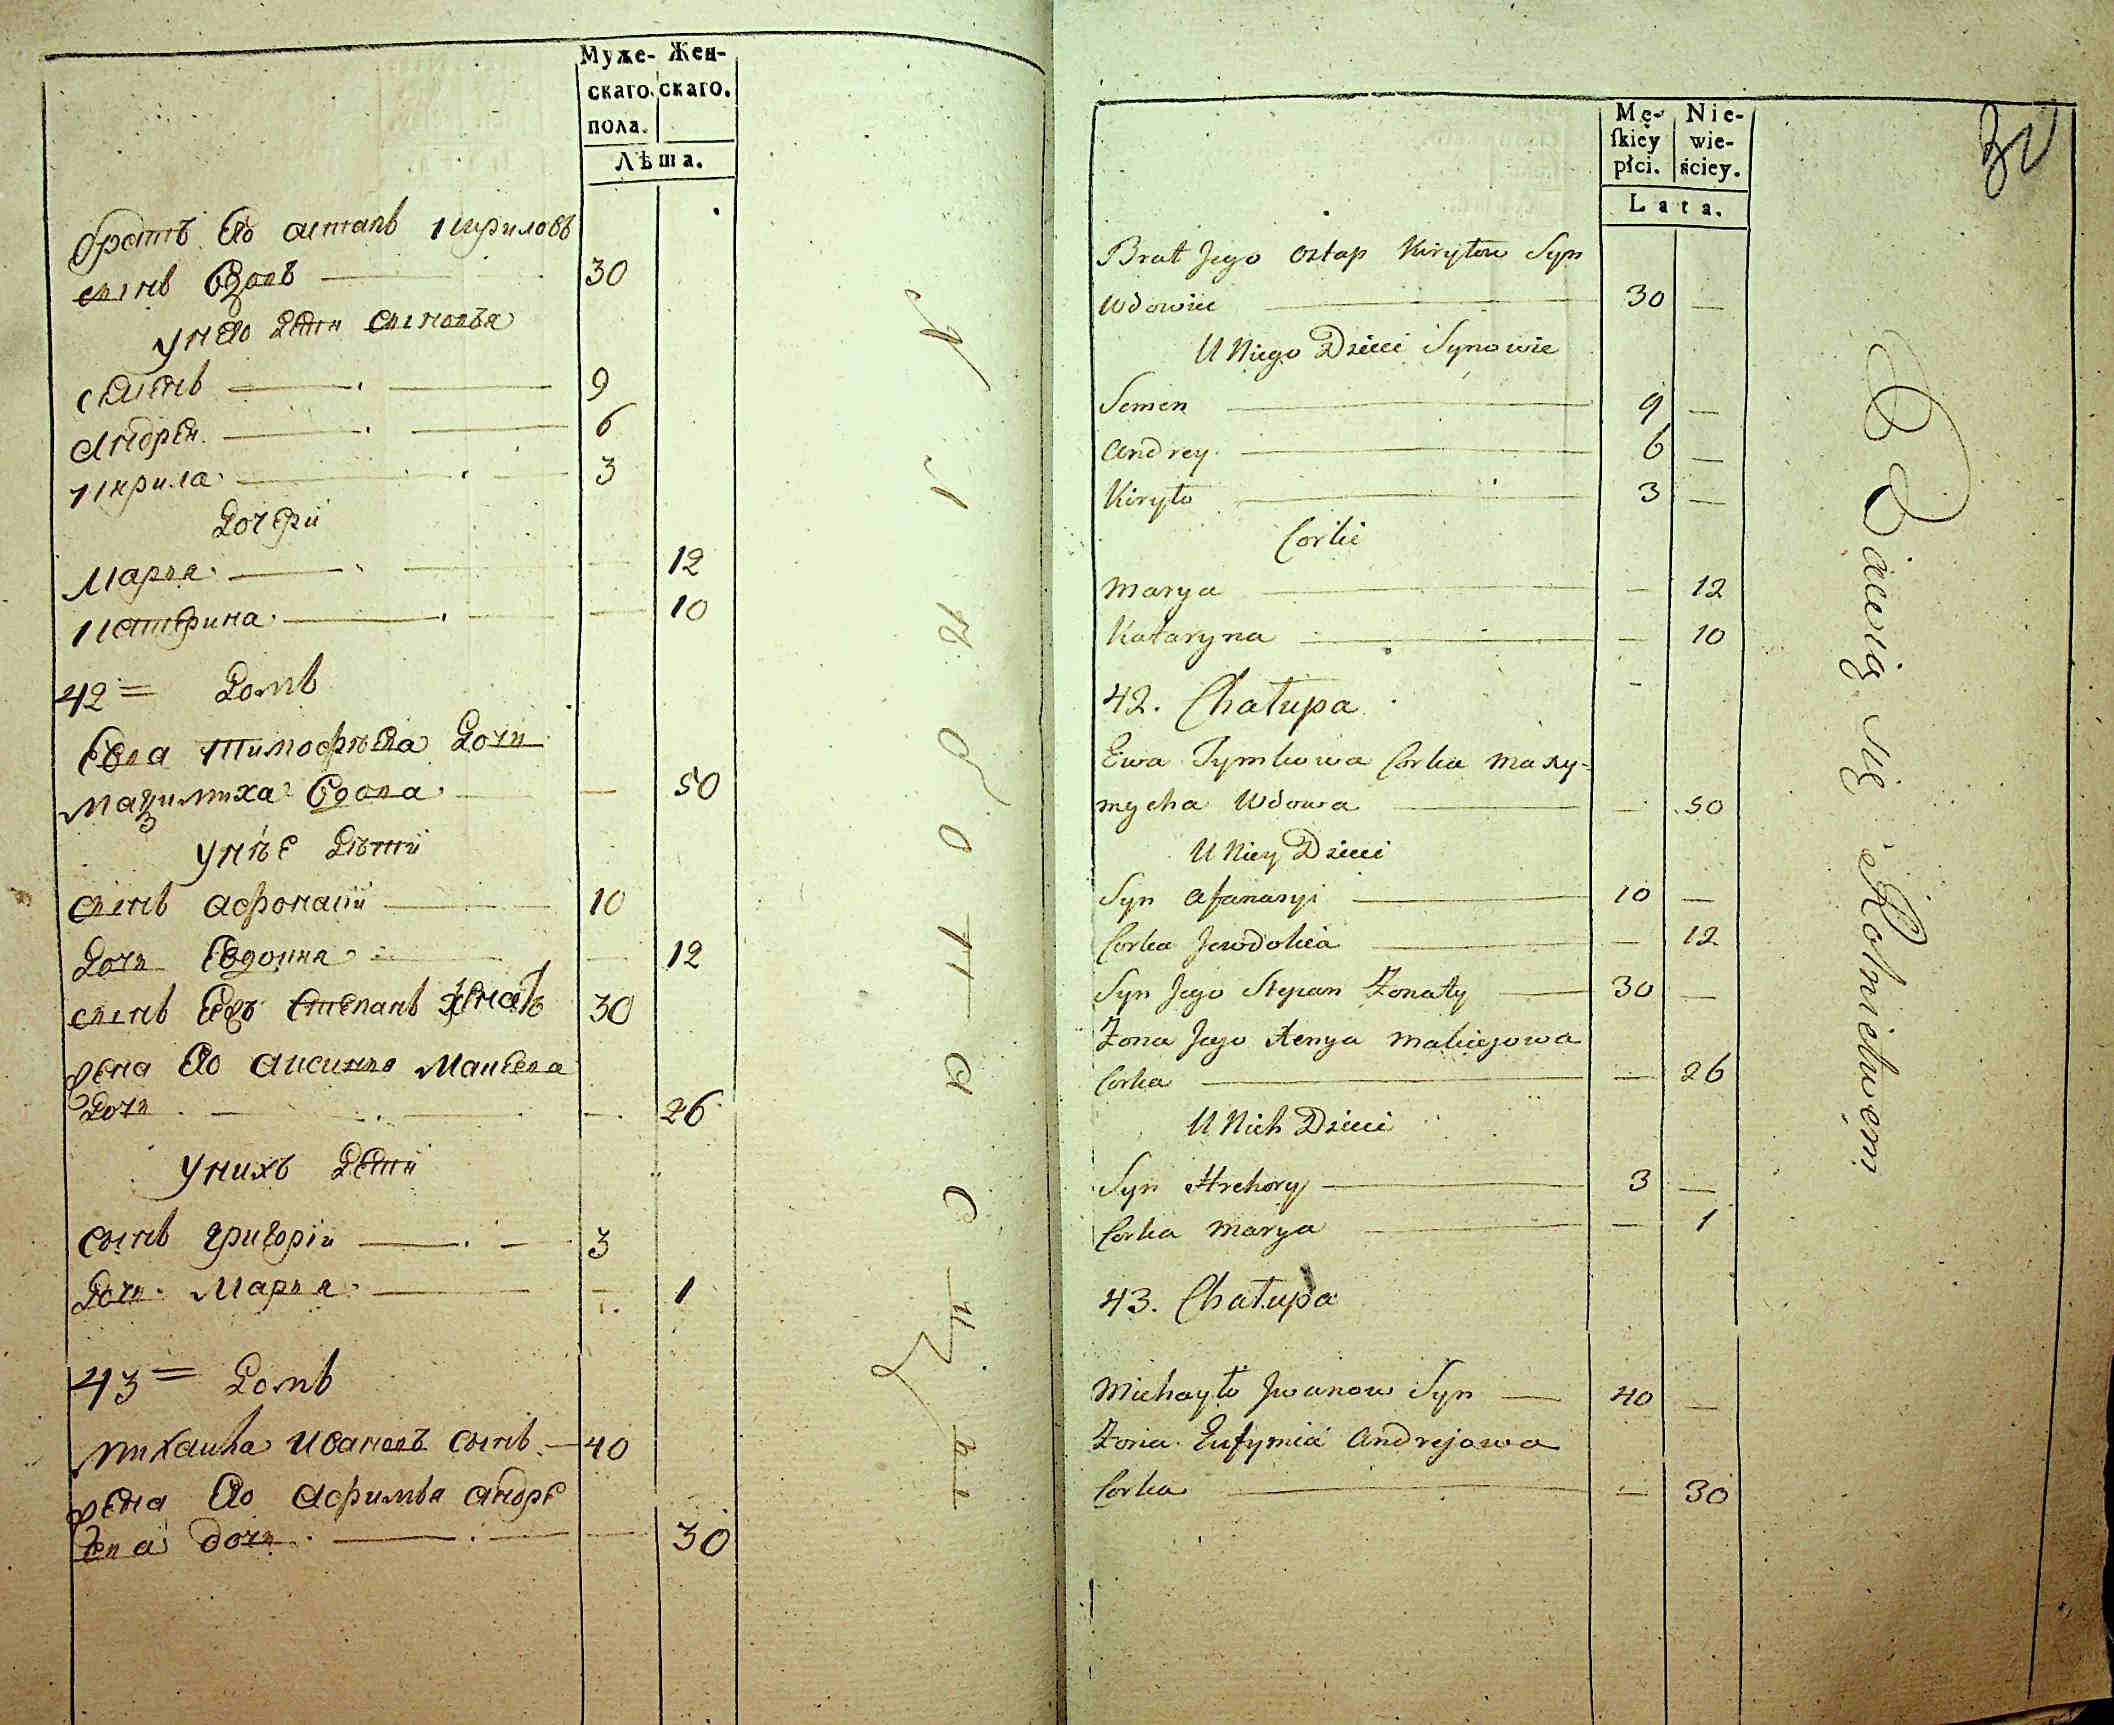 Муже- Жен-
скаго. скаго.
пола.
Лѣта.
братъ Его астапъ кириловъ
сынъ вдовъ 30
У него дети сыновья
семенъ 9
Андрей 6
кирила 3
дочери
Марья 12
катерина 10
42 = домъ
Ева Тимофѣева дочь
мазимиха вдова — 50
У нѣе дѣти
сынъ афонасий 10
дочь Евдокия — 12
сынъ Степанъ женатъ 30
жена Его аксинья Макеева
дочь — 26
У нихъ дети
сынъ григорий 3
дочь Марья — 1
43 = домъ
михаила ивановъ сынъ 40
жена Его афимья андре
ева дочь — 30
Mę- Nie-
ſkiey wie-
płci. ściey.
Lata.
Brat Jego Ostap Kiryłow Syn
Wdowiec 30 —
U Niego Dzieci Synowie
Semen 9 —
Andrey 6 —
Kiryło 3 —
Corki
Marya — 12
Kataryna — 10
42. Chałupa
Ewa Tymkowa Corka Maxy-
mycha Wdowa — 50
U Niey Dzieci
Syn Afanasyi 10 —
Corka Jewdokia — 12
Syn Jego Stepan Żonaty 30 —
Żona Jego Xenya Makiejowa
Corka — 26
U Nich Dzieci
Syn Hrehory 3 —
Corka Marya — 1
43. Chałupa
Michayło Jwanow Syn 40 —
Żona Eufymia Andrejowa
Corka — 30
Bawią się Rolnictwem